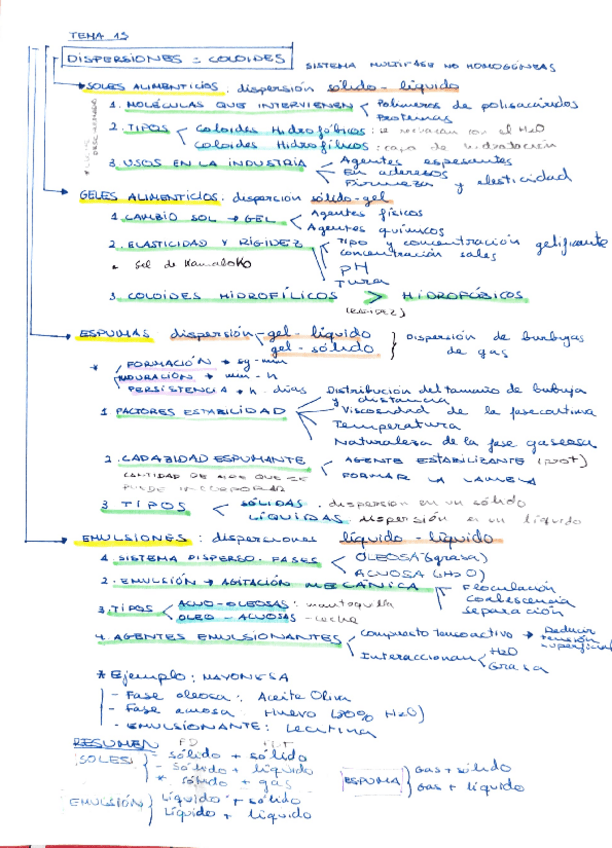 TEMA 15
DISPERSIONES = COLOIDES SISTEMA MULTIFASE NO HOMOGÉNEAS
SOLES ALIMENTICIOS. dispersión sólido-líquido
1. MOLÉCULAS QUE INTERVIENEN Polímeros de polisacáridos
Proteínas
2. TIPOS Coloides Hidrofóbicos: se con el H2O
Coloides Hidrofílicos: capa de hidratación
3. USOS EN LA INDUSTRIA Agentes espesantes
En aderezos
Firmeza y elasticidad
GELES ALIMENTICIOS. dispersión sólido-gel
1. CAMBIO SOL → GEL Agentes físicos
Agentes químicos
2. ELASTICIDAD Y RIGIDEZ Tipo y concentración gelificante
concentración sales
Gel de
PH
Tura
3 COLOIDES HIDROFÍLICOS > HIDROFÓBICOS
(RAPIDEZ)
ESPUMAS dispersión gel-líquido
gel-sólido
Dispersión de burbujas
de gas
* FORMACIÓN → sg-min
MADURACIÓN → min-h
PERSISTENCIA → h. días
Distribución del tamaño de burbuja
y distancia
1 FACTORES ESTABILIDAD Viscosidad de la fase continua
Temperatura
Naturaleza de la fase gaseosa
2. CAPACIDAD ESPUMANTE AGENTE ESTABILIZANTE (prot)
CANTIDAD DE AIRE QUE SE
PUEDE INCORPORAR
FORMAR LA LAMELA
3 TIPOS SÓLIDAS. dispersión en un sólido
LÍQUIDAS. dispersión en un líquido
EMULSIONES: dispersiones líquido-líquido
1. SISTEMA DISPERSO. FASES OLEOSA (grasa)
ACUOSA (H2O)
2. EMULSIÓN → AGITACIÓN MECÁNICA Floculación
coalescencia
separación
3. TIPOS ACUO-OLEOSAS: mantequilla
OLEO-ACUOSAS - leche
4. AGENTES EMULSIONANTES Compuesto tensoactivo → Reducir
tensión
superficial
Interaccionan H2O
Grasa
* Ejemplo: MAYONESA
- Fase oleosa: Aceite Oliva
- Fase acuosa Huevo (90% H2O)
- EMULSIONANTE: Lecitina
RESUMEN FD
SOLES - sólido + sólido
- sólido + líquido
* sólido + gas
EMULSIÓN Líquido + sólido
Líquido + líquido
ESPUMA Gas + sólido
Gas + líquido